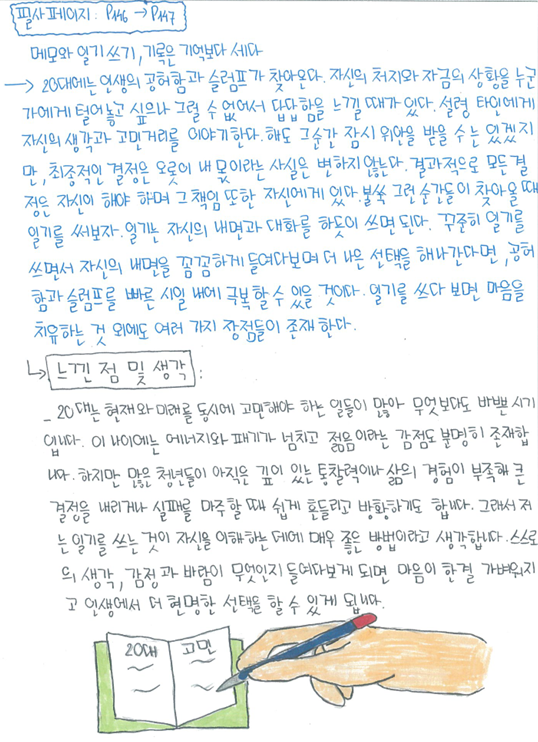 필사페이지 : P.146 → P.147
메모와 일기 쓰기, 기록은 기억보다 세다
→ 20대에는 인생의 공허함과 슬럼프가 찾아온다. 자신의 처지와 자금의 상황을 누군
가에게 털어놓고 싶으나 그럴 수 없어서 답답함을 느낄 때가 있다. 설령 타인에게
자신의 생각과 고민거리를 이야기한다. 해도 그순간 잠시 위안을 받을 수는 있겠지
만, 최종적인 결정은 오롯이 내 몫이라는 사실은 변하지 않는다. 결과적으로 모든 결
정은 자신이 해야 하며 그 책임 또한 자신에게 있다. 불쑥 그런 순간들이 찾아올 때
일기를 써보자. 일기는 자신의 내면과 대화를 하듯이 쓰면 된다. 꾸준히 일기를
쓰면서 자신의 내면을 꼼꼼하게 들여다보며 더 나은 선택을 해나간다면, 공허
함과 슬럼프를 빠른 시일 내에 극복할 수 있을 것이다. 일기를 쓰다 보면 마음을
치유하는 것 외에도 여러 가지 장점들이 존재한다.
↳ 느낀 점 및 생각 :
_ 20대는 현재와 미래를 동시에 고민해야 하는 일들이 많아 무엇보다도 바쁜 시기
입니다. 이 나이에는 에너지와 패기가 넘치고 젊음이라는 강점도 분명히 존재합
니다. 하지만 많은 청년들이 아직은 깊이 있는 통찰력이나 삶의 경험이 부족해 큰
결정을 내리거나 실패를 마주할 때 쉽게 흔들리고 방황하기도 합니다. 그래서 저
는 일기를 쓰는 것이 자신을 이해하는 데에 매우 좋은 방법이라고 생각합니다. 스스로
의 생각, 감정과 바람이 무엇인지 들여다보게 되면 마음이 한결 가벼워지
고 인생에서 더 현명한 선택을 할 수 있게 됩니다.
20대 고민